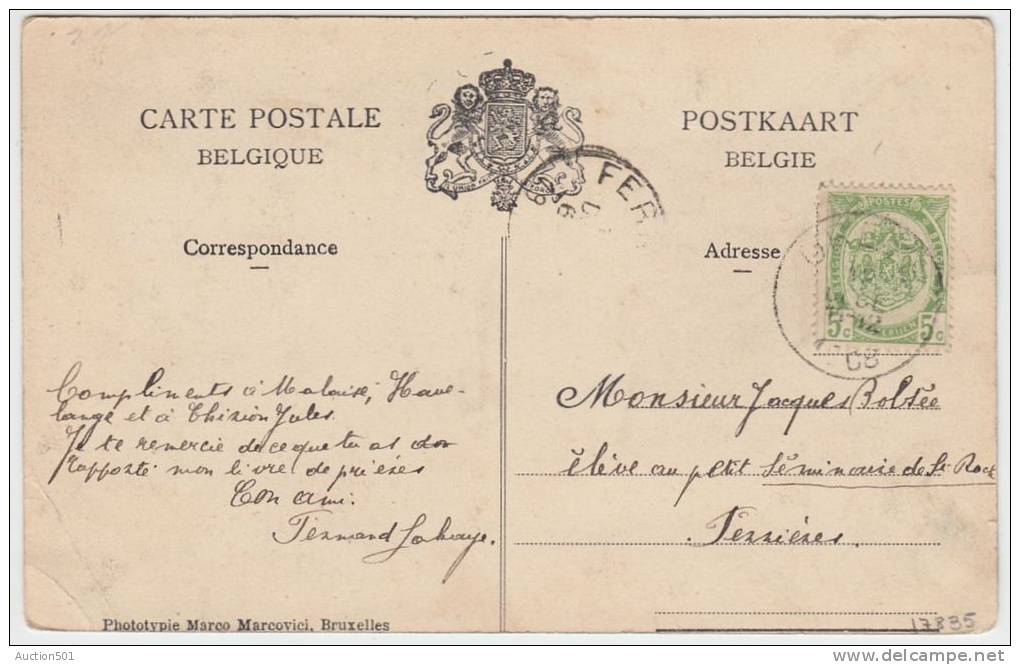 CARTE POSTALE
BELGIQUE
POSTKAART
BELGIE
FER
POSTES
5c 5c
12
08
Correspondance
Adresse
Compliments à Malaise, Have-
lange et à Thirion Jules.
Je te remercie de ce que tu as
rapporté mon livre de prières
Ton ami.
Fernand Lahaye.
Monsieur Jacques Bolsée
élève au petit Séminaire de St Roch
Ferrières.
Phototypie Marco Marcovici, Bruxelles
17835
Auction501
delcampe.net